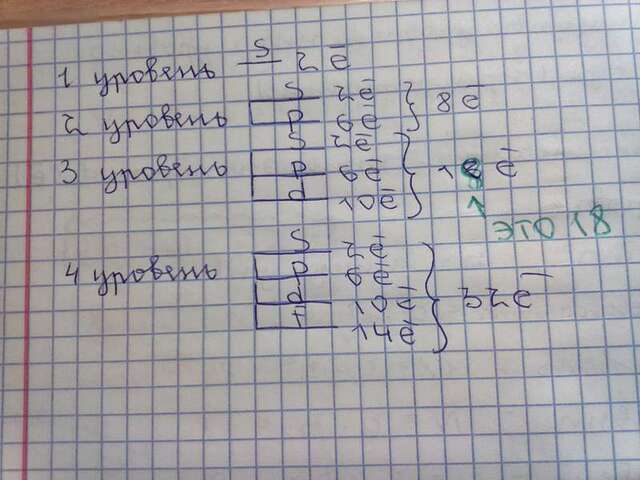 1 уровень s 2ē
s 2ē
2 уровень p 6ē } 8ē
s 2ē
3 уровень p 6ē } 18 ē
d 10ē
это 18
s 2ē
4 уровень p 6ē
d 10ē } 32ē
f 14ē